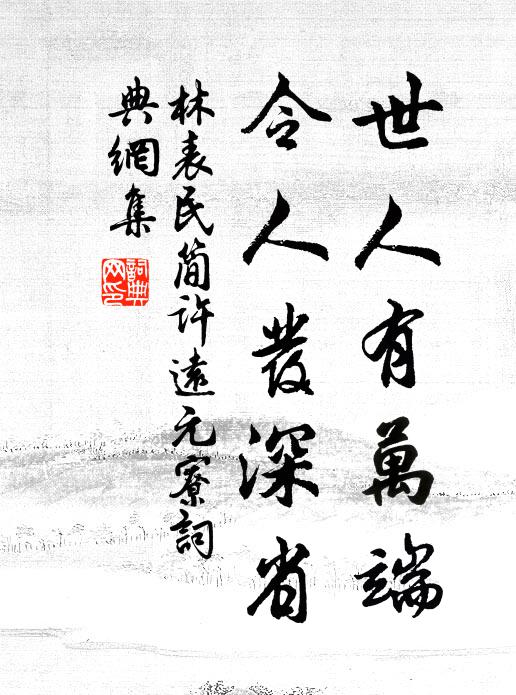 世人有萬端
令人發深省
林表民簡許遠元寮詞
典網集
詞典網印